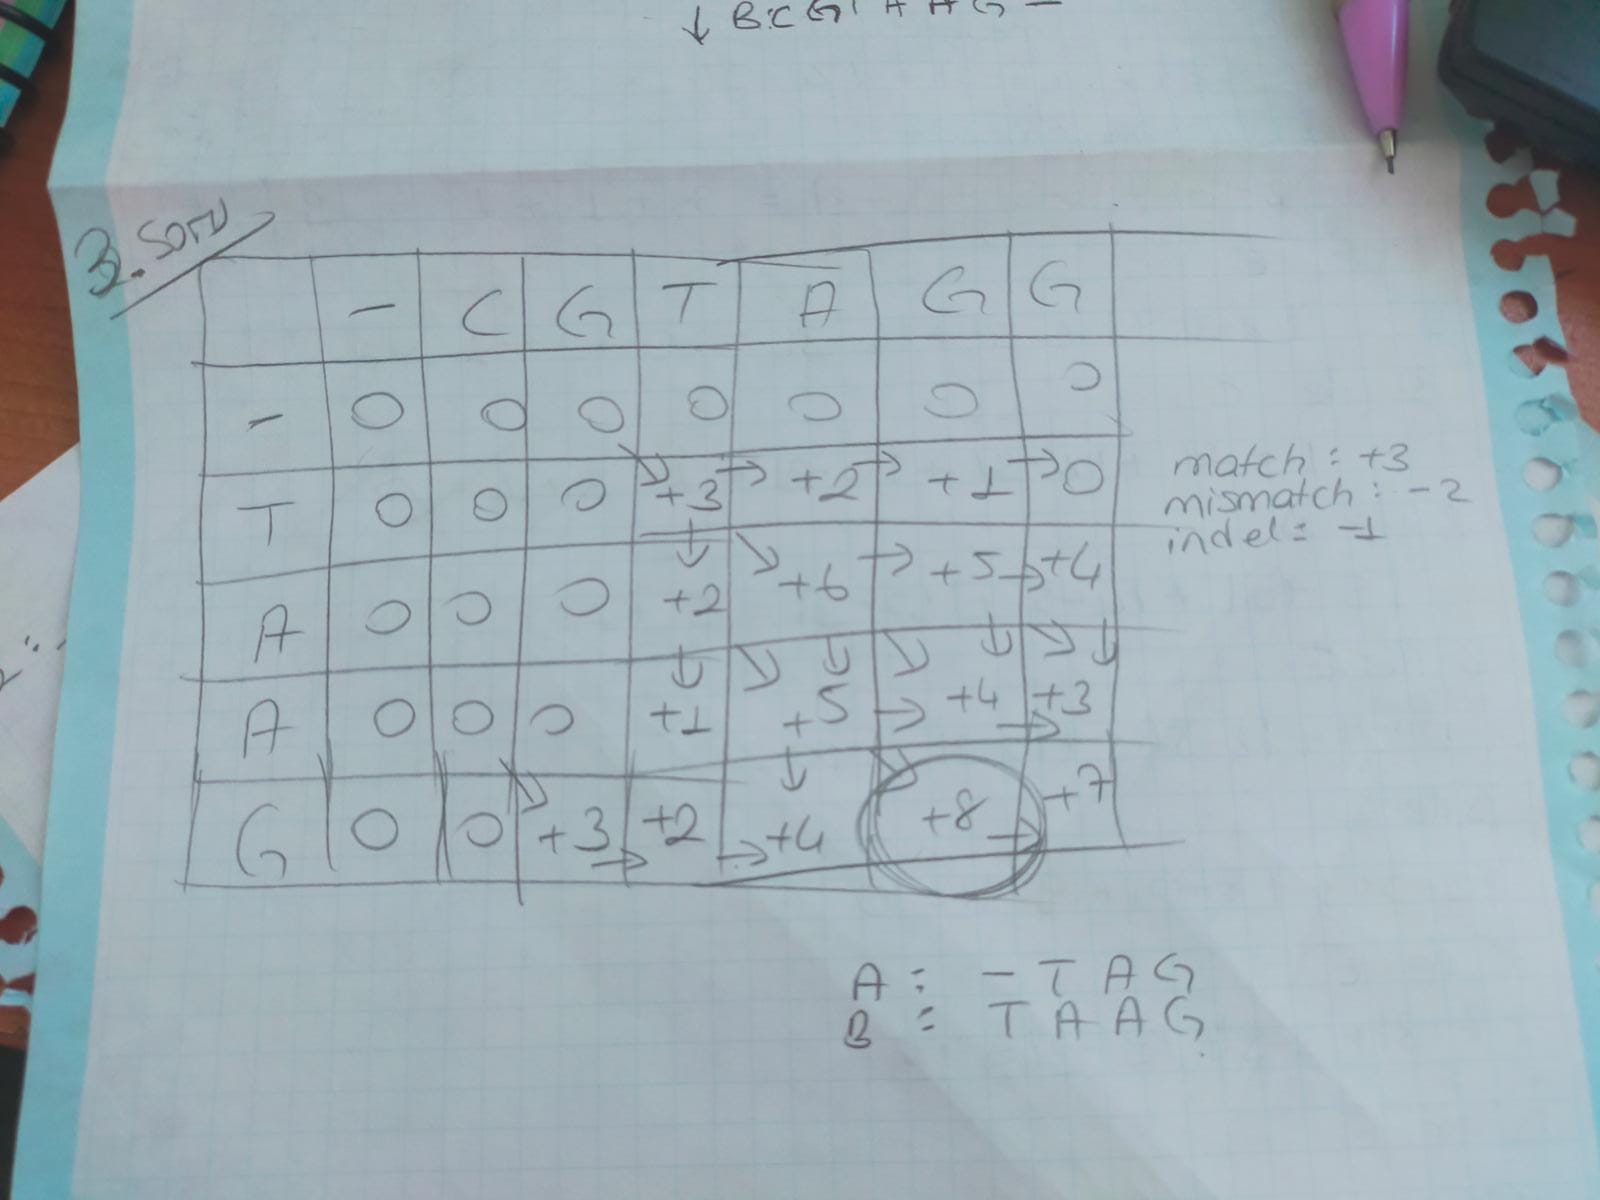 ↓ B:CGTAAG-
3. soru
- C G T A G G
- 0 0 0 0 0 0 0
T 0 0 0 +3 → +2 → +1 → 0
A 0 0 0 +2 +6 → +5 → +4
A 0 0 0 +1 +5 → +4 → +3
G 0 0 +3 → +2 → +4 +8 → +7
match : +3
mismatch : -2
indel : -1
A : - T A G
B : T A A G